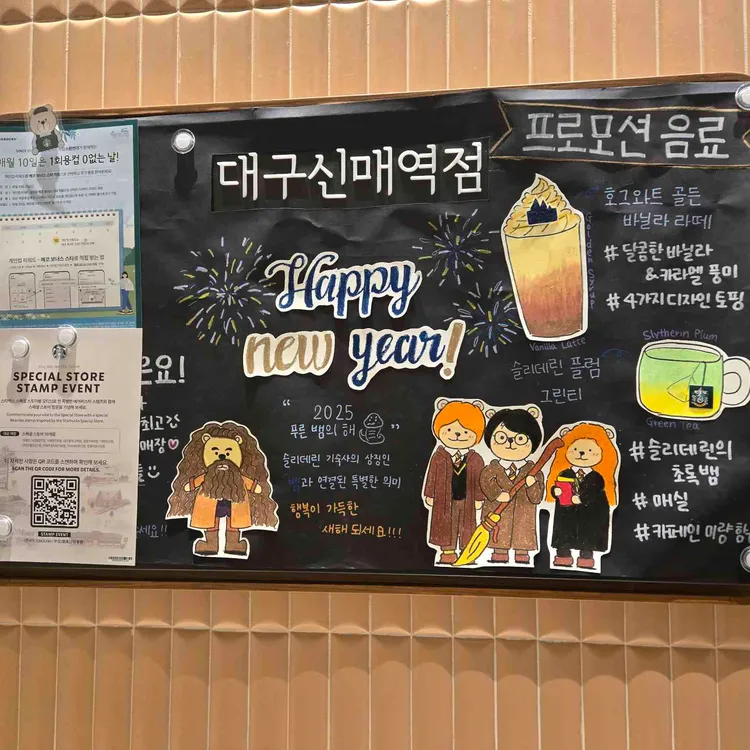 매월 10일은 1회용컵 0없는 날!
개인컵 리워드 - 에코 보너스 스타로 적립 받는 법
SPECIAL STORE
STAMP EVENT
SCAN THE QR CODE FOR MORE DETAILS.
STAMP EVENT
요!
최고
매장♡
세요!!
대구신매역점
Happy
new year!
“ 2025
푸른 뱀의 해 ”
슬리데린 기숙사의 상징인
뱀과 연결된 특별한 의미
행복이 가득한
새해 되세요!!!
프로모션 음료
호그와트 골든
바닐라 라떼
Golden Syrup
# 달콤한 바닐라
& 카라멜 풍미
# 4가지 디자인 토핑
Vanilla Latte
슬리데린 플럼
그린티
Slytherin Plum
Green Tea
# 슬리데린의
초록뱀
# 매실
# 카페인 미량 함